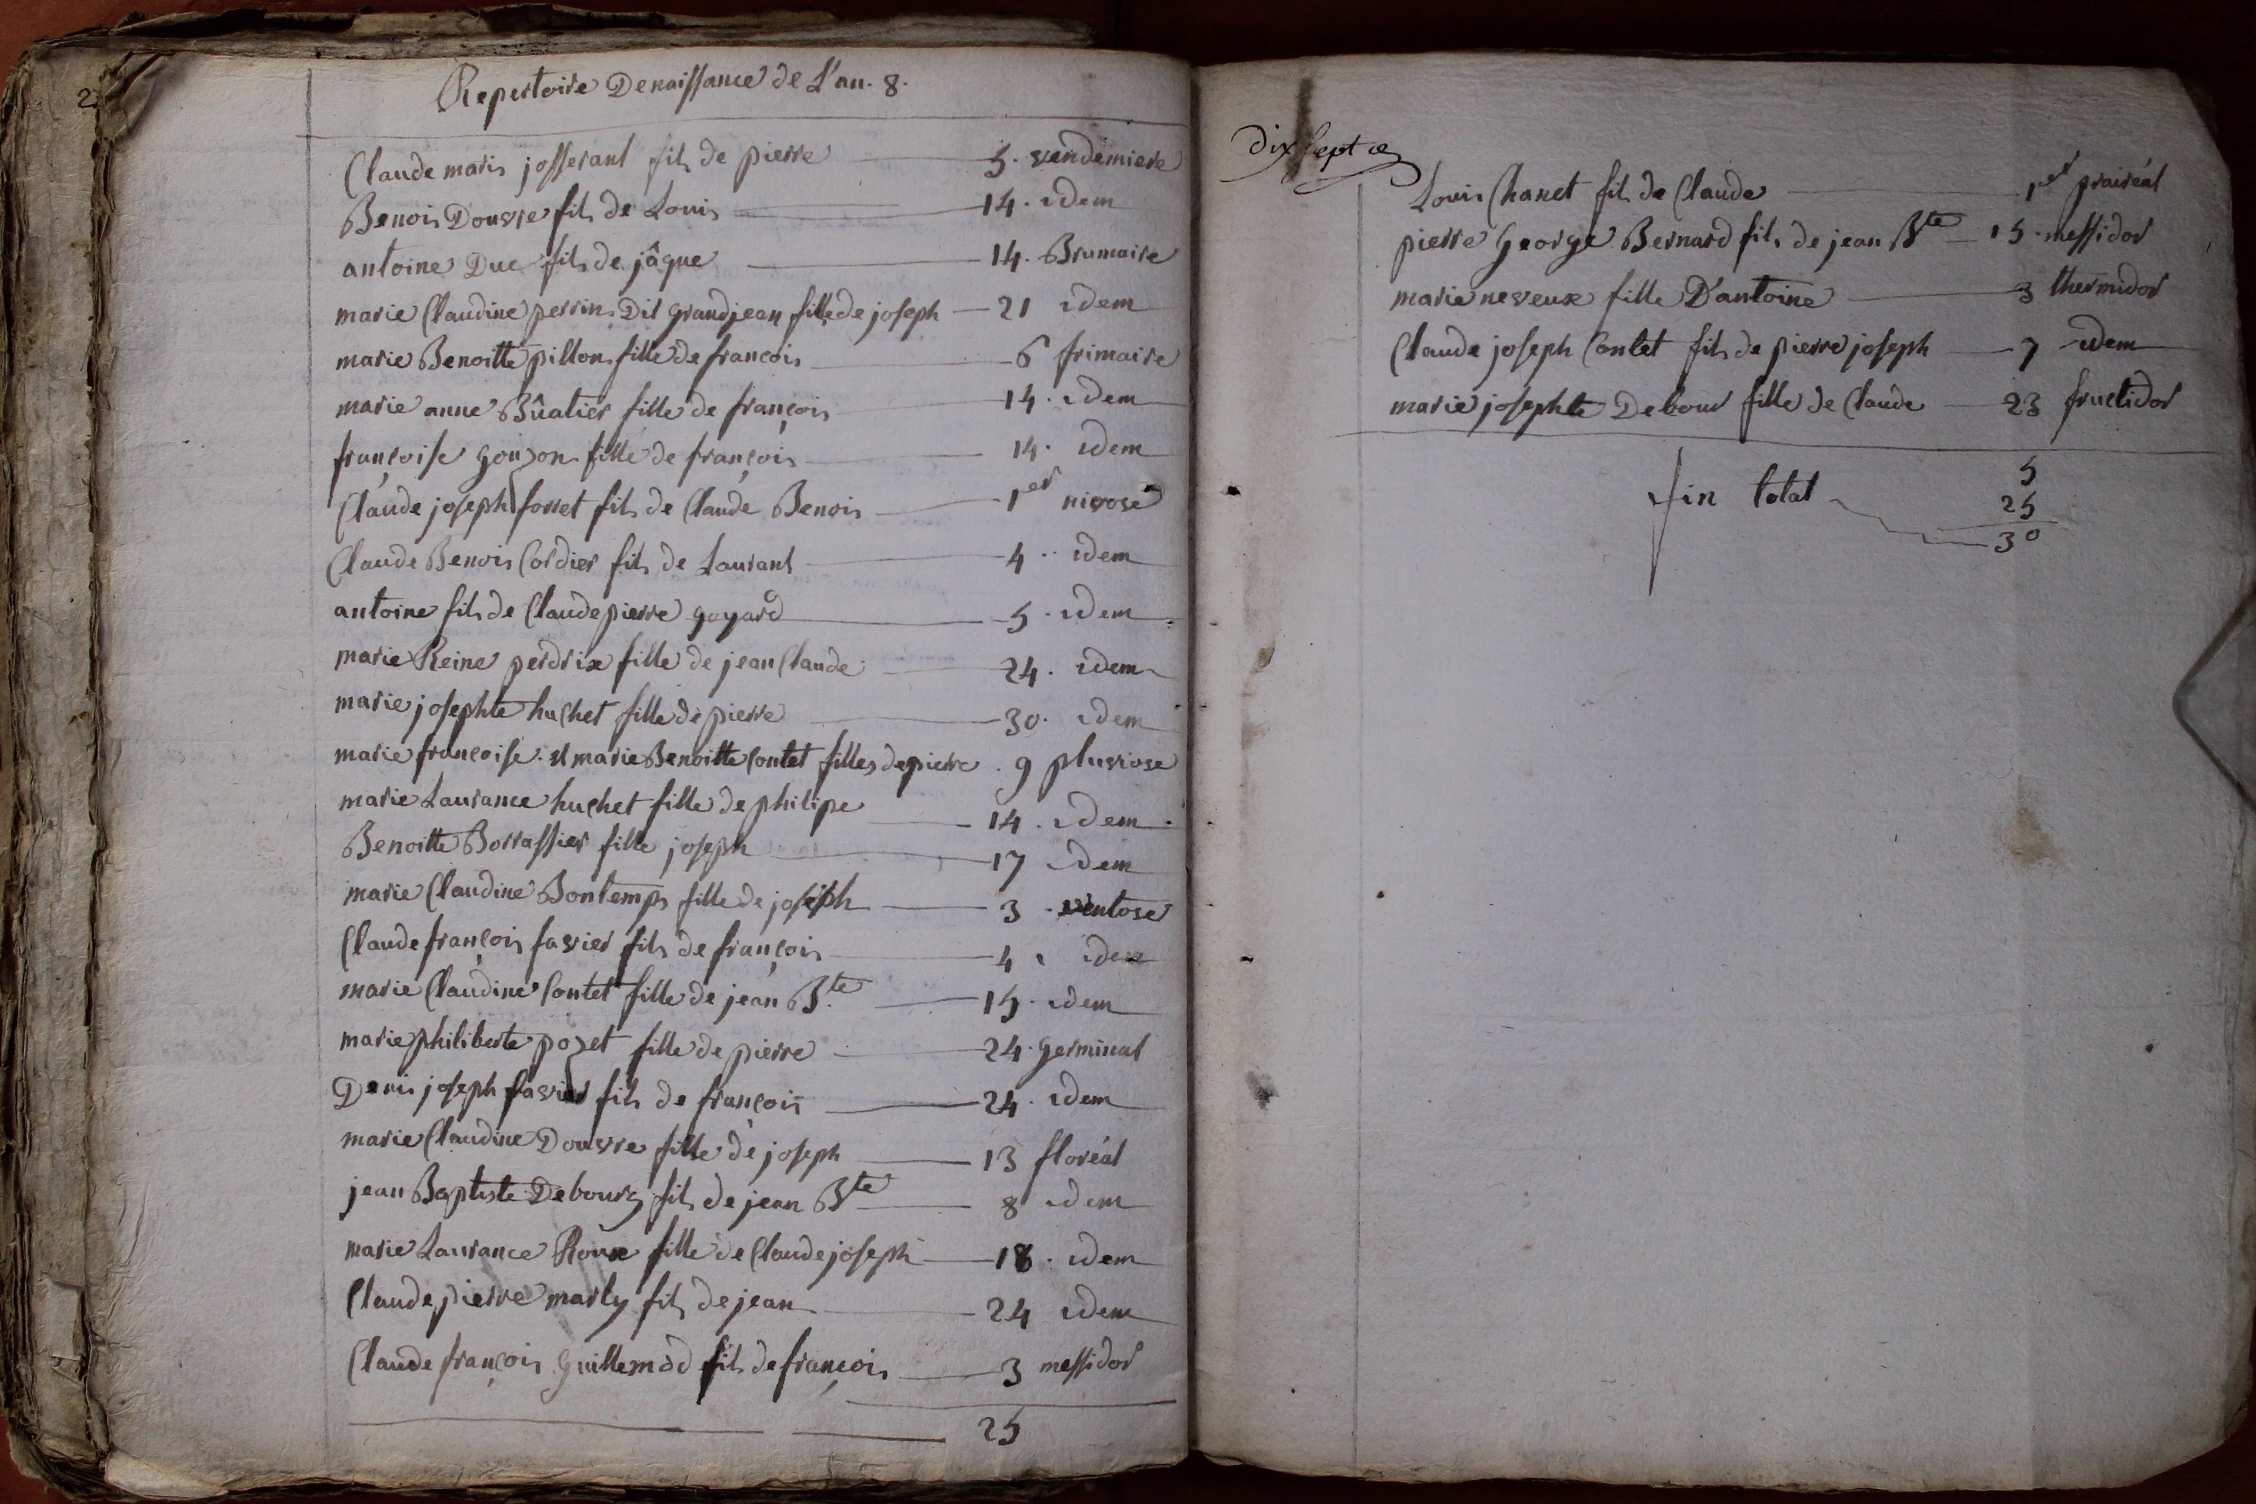 2
Repertoire Denaissance de L'an. 8.
Claude maris josserant fils de pierre 5. vendemiere
Benois Douvre fils de Louis 14. idem
antoine Duc fils de jâque 14. Brumaire
marie Claudine perrin Dit grandjean fille de joseph 21 idem
marie Benoitte pillon fille de francois 6 frimaire
marie anne Bûatier fille de françois 14. idem
françoise gouzon fille de françois 14. idem
Claude joseph forret fils de Claude Benois 1er nivose
Claude Benois Cordier fils de Laurant 4.. idem
antoine fils de Claude pierre goyard 5. idem
marie Reine perdrix fille de jean Claude 24. idem
marie josephte huchet fille de pierre 30. idem
marie françoise. et marie Benoitte Contet filles de pierre. 9 pluviose
marie Laurance huchet fille de philipe 14. idem
Benoitte Borrassier fille joseph 17 idem
marie Claudine Bontemps fille de joseph 3. ventose
Claude françois favier fils de françois 4 idem
marie Claudine Contet fille de jean Bte 15. idem
marie philiberte pozet fille de pierre 24. germinal
Denis joseph favier fils de françois 24. idem
marie Claudine Douvre fille de joseph 13 floréal
jean Baptiste Debourg fils de jean Bte 8 idem
marie Laurance Roux fille de Claude joseph 18. idem
Claude pierre marly fils de jean 24 idem
Claude françois guillemod fils de françois 3 messidor
25
dix sept
Louis Chanet fils de Claude 1er prairéal
pierre george Bernard fils de jean Bte 15. messidor
marie neveux fille D'antoine 3 thermidor
Claude joseph Contet fils de pierre joseph 7 idem
marie josephte Debour fille de Claude 23 fructidor
fin total 5
25
30